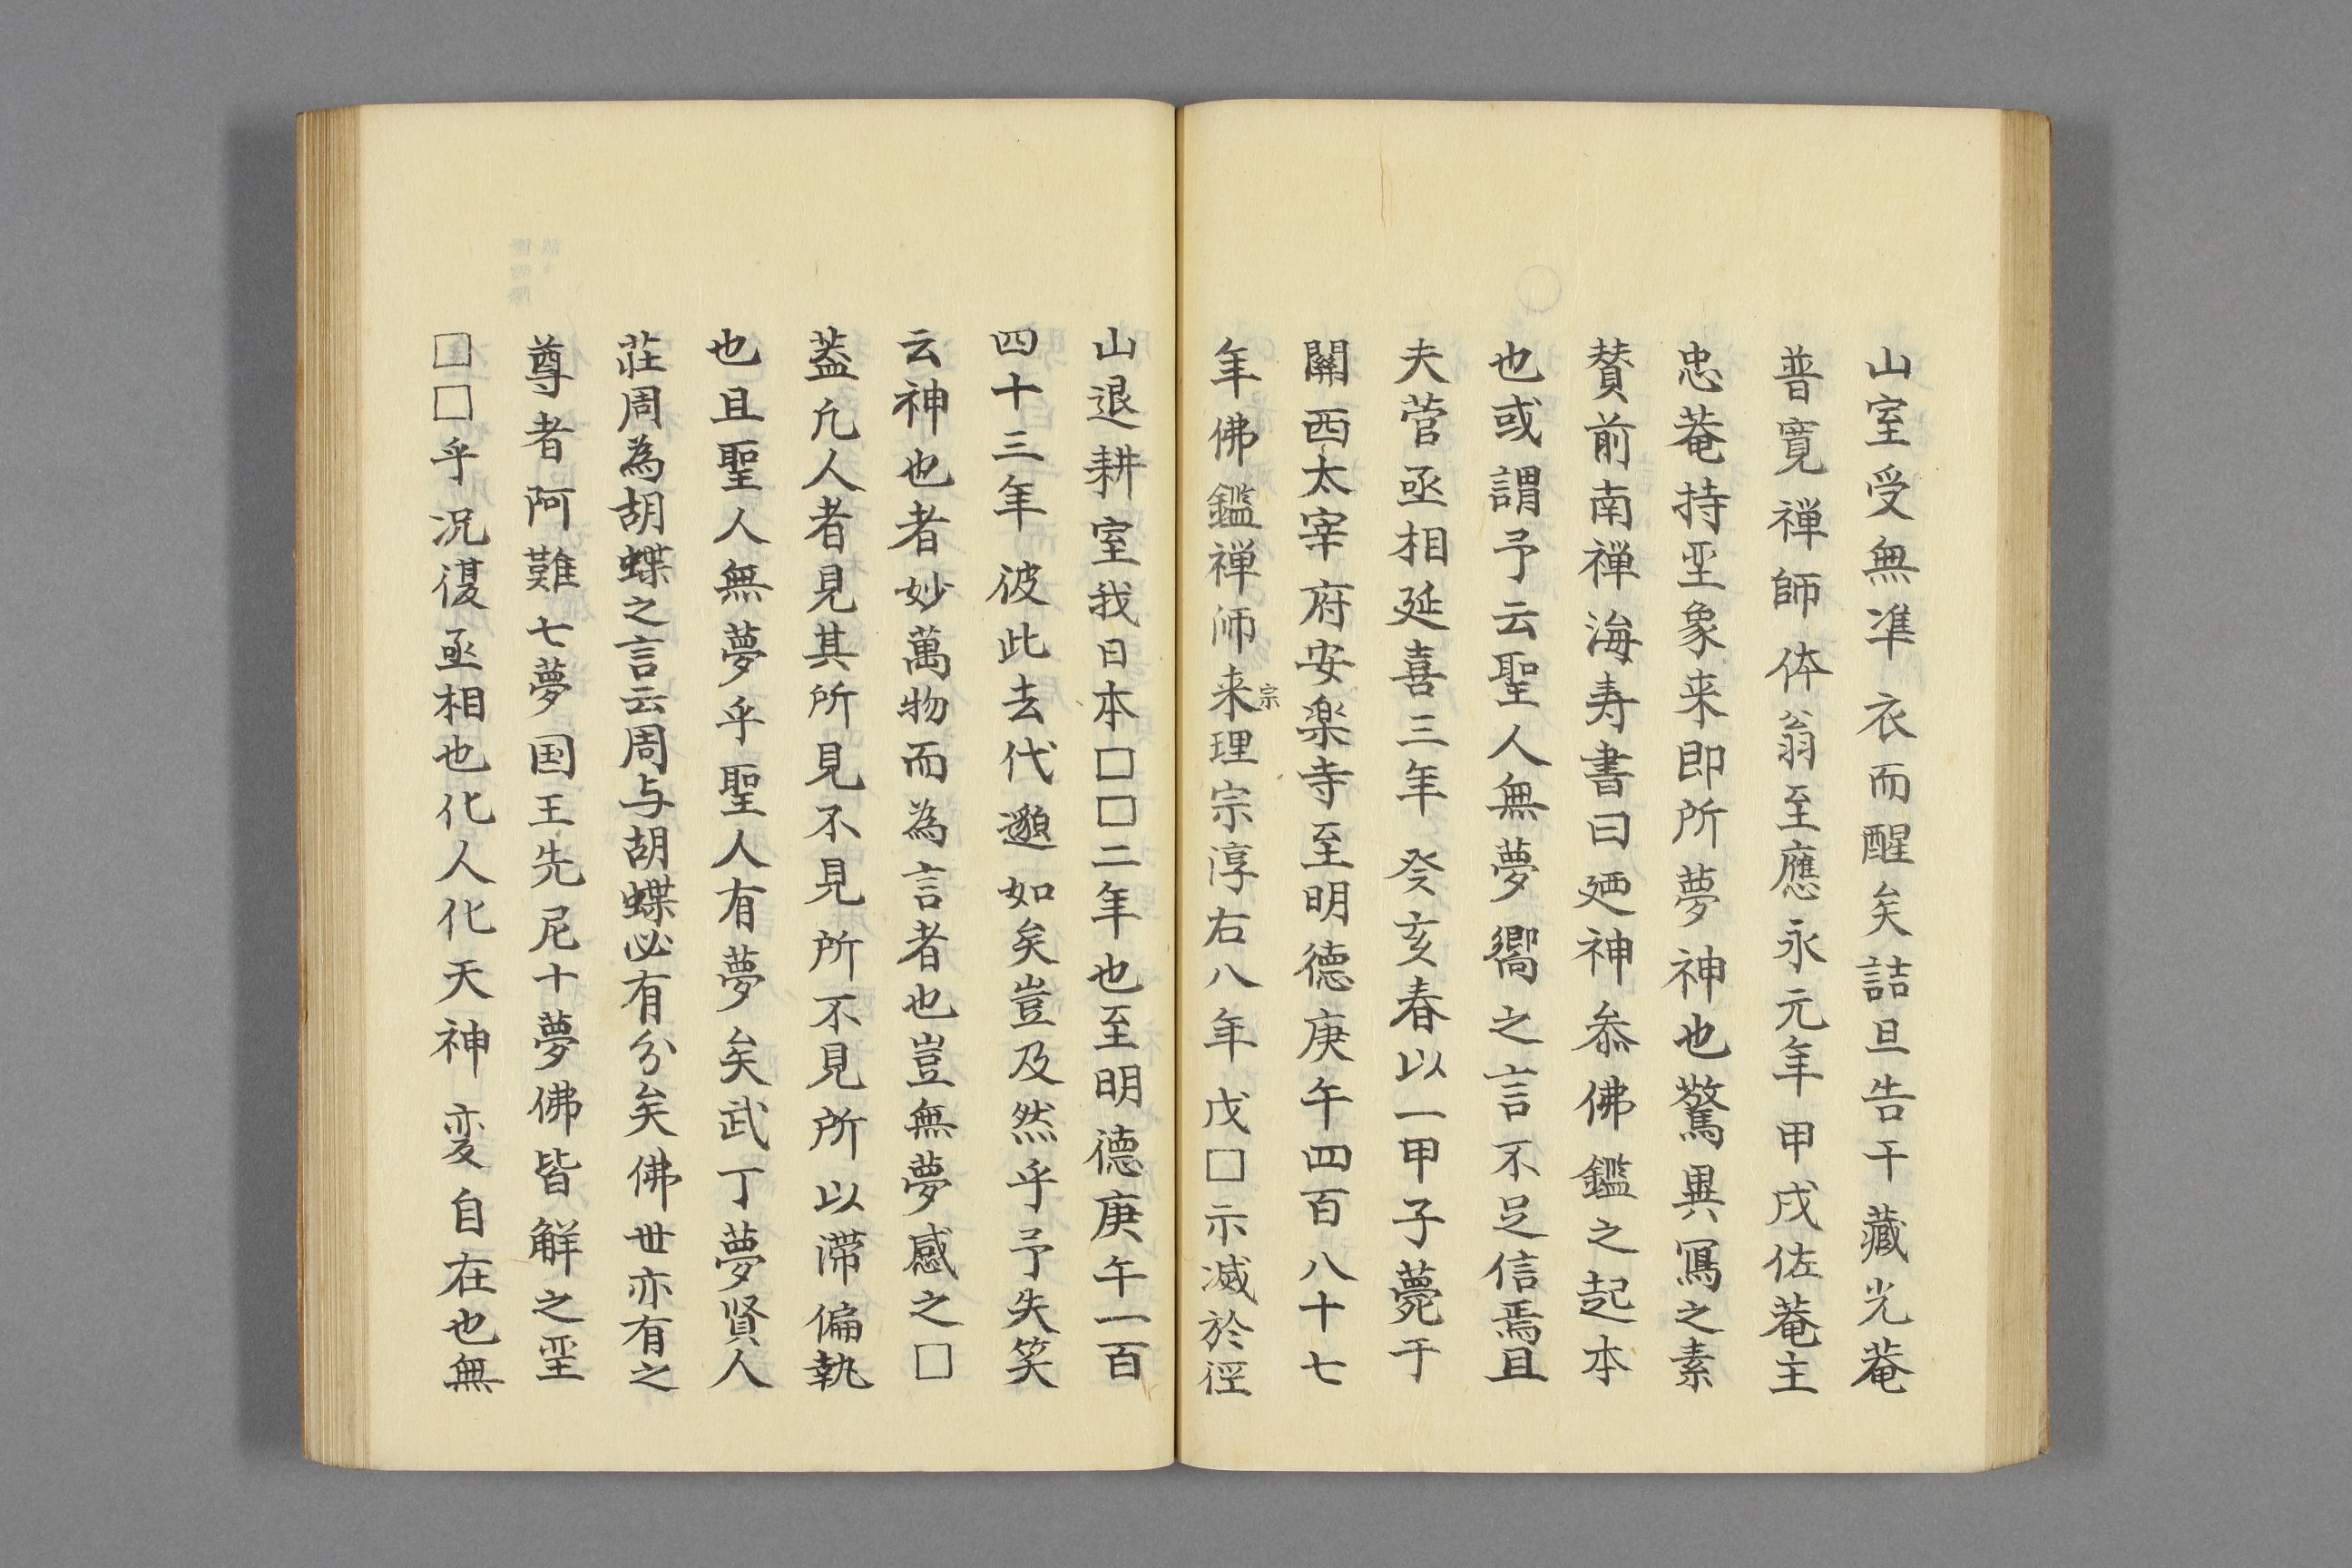 山室受無準衣而醒矣詰旦告干藏光菴
普寛禅師体翁至應永元年甲戌佐菴主
忠菴持𦤶象来即所夢神也驚異冩之素
賛前南禅海寿書曰廼神叅佛鑑之起本
也或謂予云聖人無夢嚮之言不足信焉且
夫菅丞相延喜三年癸亥春以一甲子薨于
關西太宰府安楽寺至明德庚午四百八十七
年佛鑑禅师来宗理宗淳右八年戊□示滅於徑
山退耕室我日本□□二年也至明德庚午一百
四十三年彼此去代邈如矣豈及然乎予失笑
云神也者妙萬物而為言者也豈無夢感之□
葢凢人者見其所見不見所不見所以滞偏執
也且聖人無夢乎聖人有夢矣武丁夢賢人
莊周為胡蝶之言云周与胡蝶必有分矣佛世亦有之
尊者阿難七夢国王先尼十夢佛皆觧之𦤶
□□乎况復丞相也化人化天神変自在也無